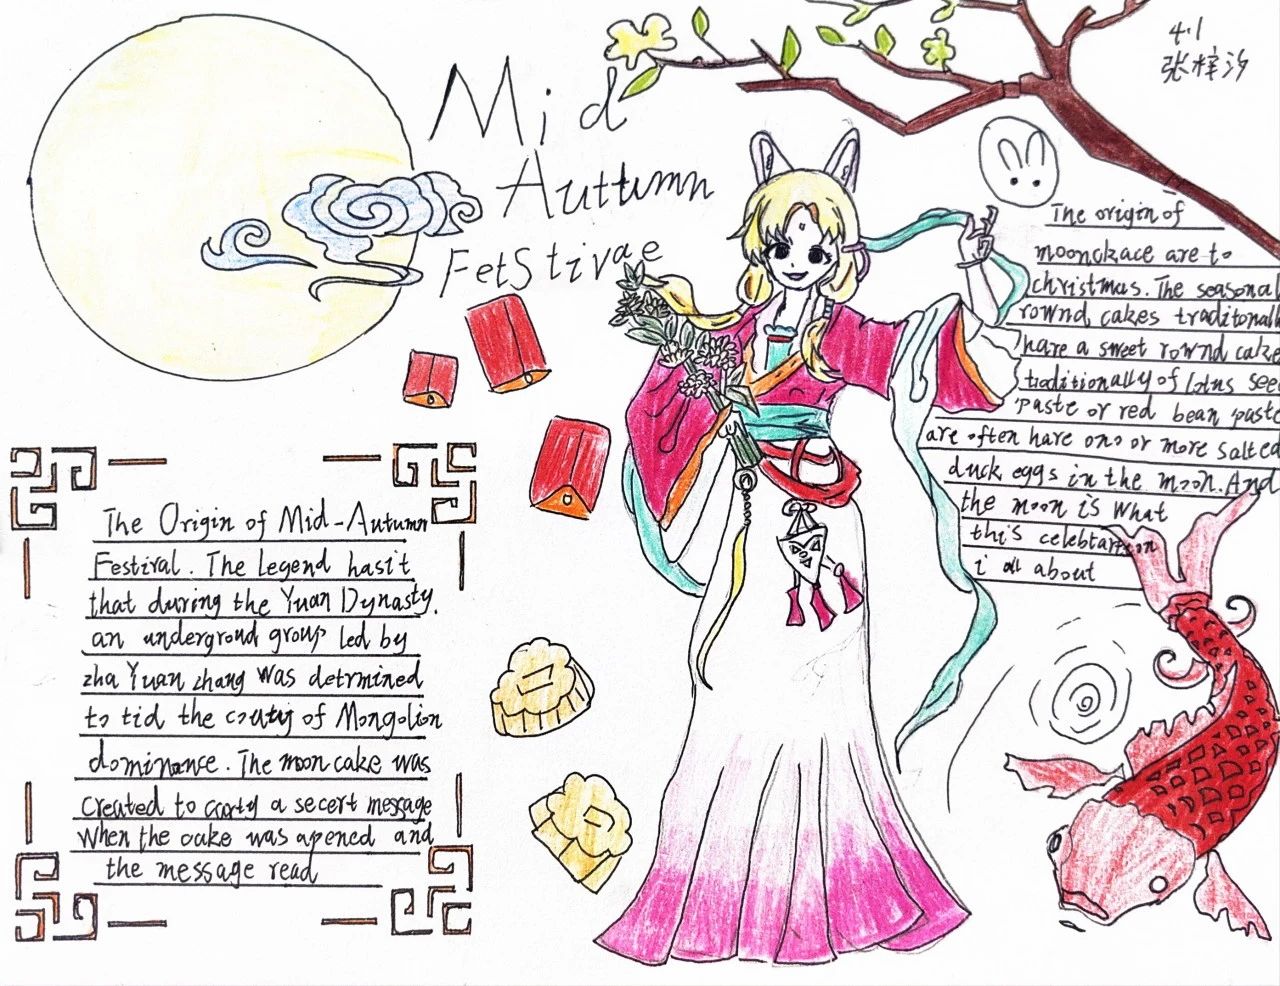 Mid
Auttumn
Fetstivae
4.1
张梓汐
The Origin of Mid-Autumn
Festival. The legend hasit
that during the Yuan Dynasty.
an undergroud group led by
zha Yuan zhang was detrmined
to tid the couty of Mongolion
dominance. The moon cake was
created to carty a secert message
When the cake was apened and
the message read
The origin of
moonckace are to
christmas. The seasonal
rownd cakes traditonall
hare a sweet rownd cake
traditionally of lotus see
paste or red bean paste
are often hare ono or more salted
duck eggs in the moon. And
the moon is what
this celebtartion
i all about